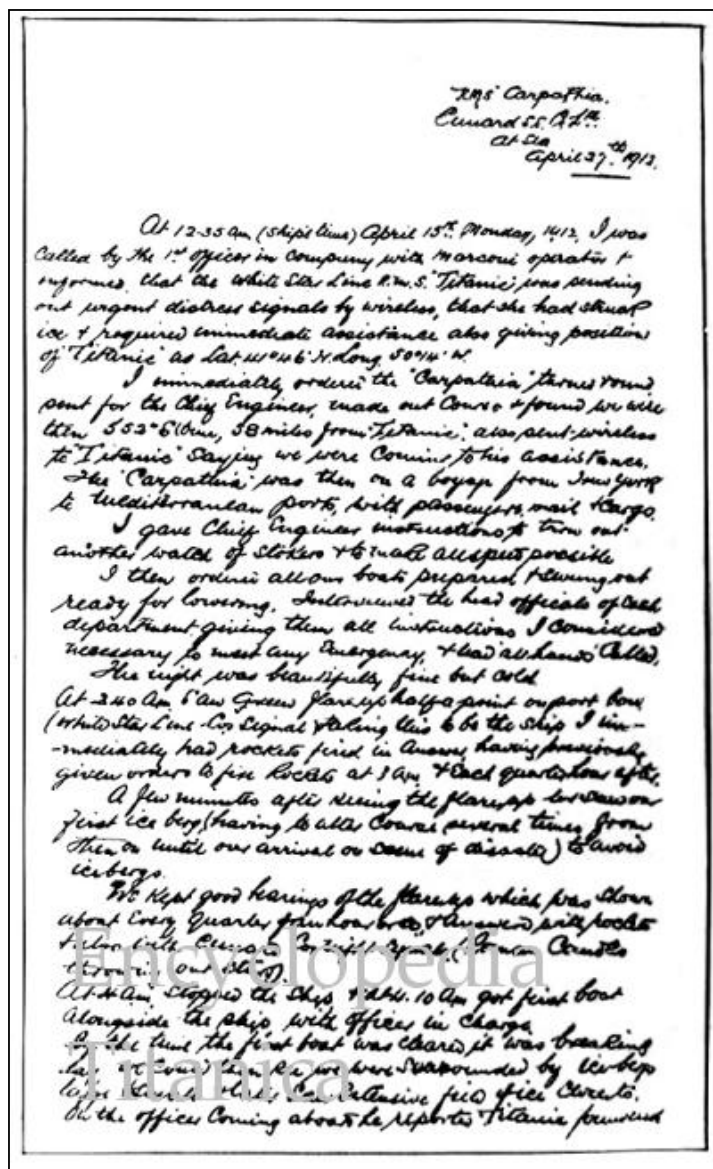 RMS "Carpathia.
Cunard S.S. Co Ltd.
At Sea
April 27th 1912.
At 12-35 am (ship's time) April 15th Monday, 1912, I was
called by the 1st officer in company with Marconi operator &
informed that the White Star Line R.M.S. "Titanic" was sending
out urgent distress signals by wireless, that she had struck
ice & required immediate assistance also giving position
of "Titanic" as Lat. 41°46' N. Long. 50°14' W.
I immediately ordered the "Carpathia" turned round
sent for the Chief Engineer, made out Course & found we were
then S 52° E (true) 58 miles from "Titanic", also sent wireless
to "Titanic" saying we were coming to his assistance.
The "Carpathia" was then on a voyage from New York
to Mediterranean ports, with passengers, mail & cargo.
I gave Chief Engineer instructions to turn out
another watch of stokers & to make all speed possible
I then ordered all our boats prepared & swung out
ready for lowering. Interviewed the head officials of each
department giving them all instructions I considered
necessary to meet any Emergency, & had all hands called.
The night was beautifully fine but cold
At 2.40 am saw Green flare up half a point on port bow
(White Star Line Cos Signal) & taking this to be the ship I im-
-mediately had rockets fired in answer having previously
given orders to fire Rockets at 3 am & Each quarter hour after.
A few minutes after seeing the flare up we saw our
first ice berg, (having to alter course several times from
then on until our arrival on scene of disaster) to avoid
icebergs.
We kept good bearings of the flare up which was shown
about Every quarter of an hour & answered with rockets
& also with Cunard Co night signals (Roman Candles
throwing out
At 4 am stopped the ship & at 4.10 am got first boat
alongside the ship with officer in charge
By the time the first boat was cleared it was breaking
day & I could then see we were surrounded by icebergs
large & small & also an extensive field of ice
On the officer coming aboard he reported Titanic foundered
Encyclopedia
Titanica